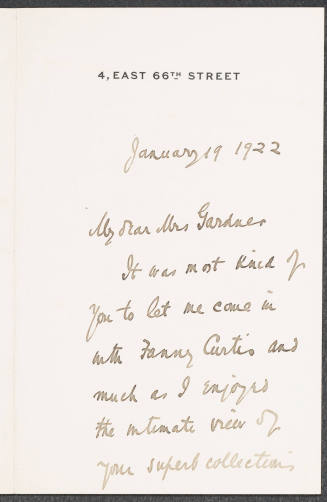 4, EAST 66TH STREET
January 19 1922
My dear Mrs Gardner
It was most kind of
you to let me come in
with Fanny Curtis and
much as I enjoyed
the intimate view of
your superb collections